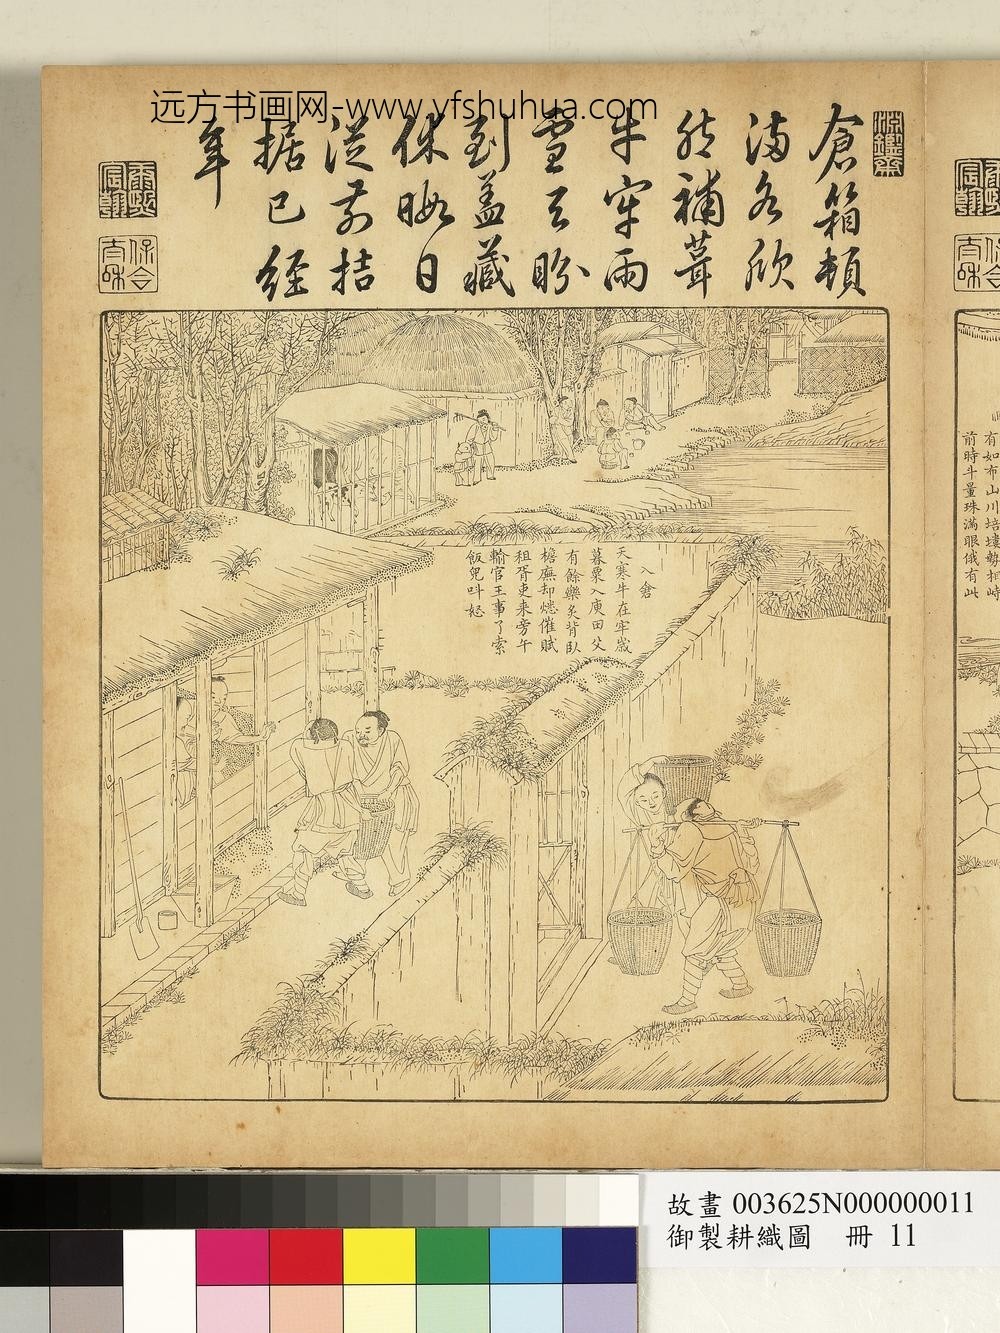 远方书画网-www.yfshuhua.com
倉箱頓
滿各欣
然補葺
牛牢雨
雪天盼
到蓋藏
休暇日
從前拮
据已經
年
入倉
天寒牛在牢歲
暮粟入庾田父
有餘樂炙背臥
檐廡却愁催賦
租胥吏来旁午
輸官王事了索
飯兒叫怒
淵鑑齋
康熙
宸翰
保合
太和
有如布山川培塿勢相峙
前時斗量珠滿眼俄有此
故畫 003625N000000011
御製耕織圖 冊 11